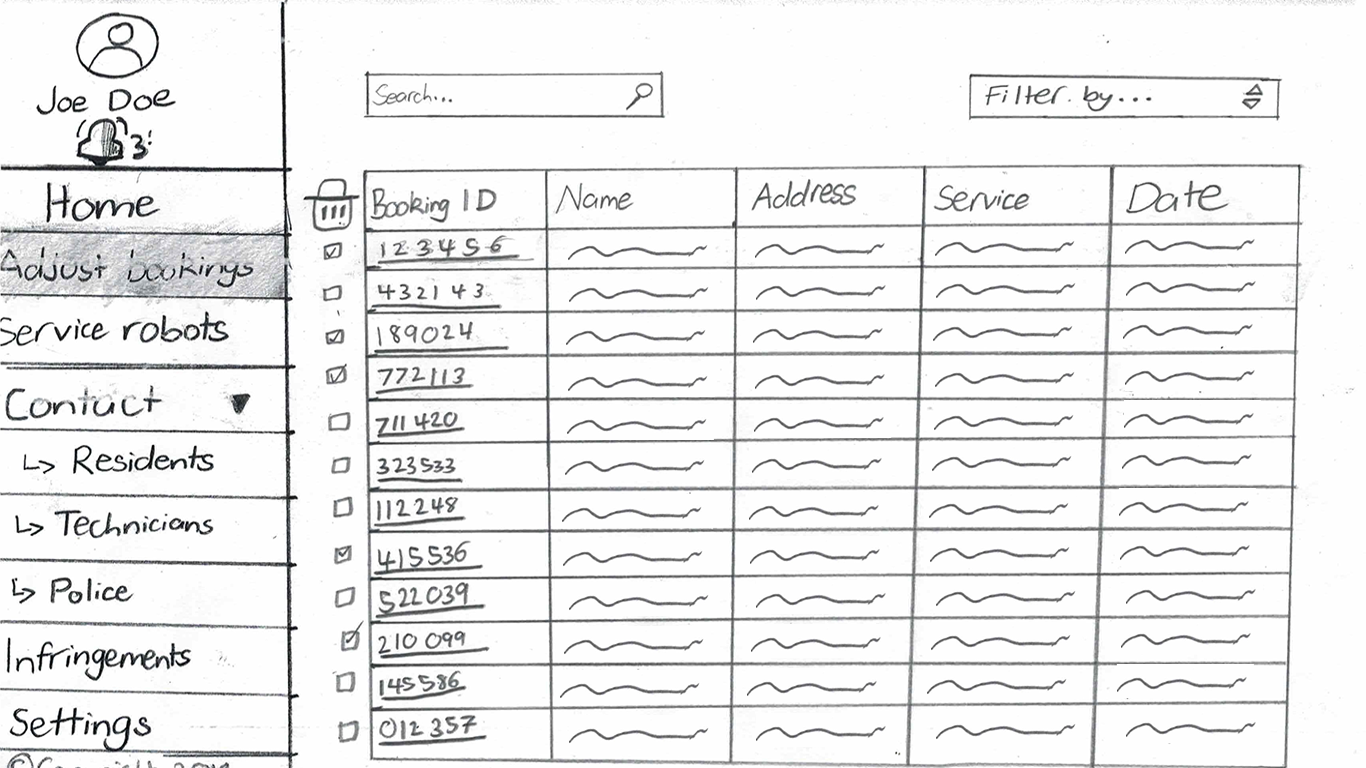 Joe Doe
3
Home
Adjust bookings
Service robots
Contact
Residents
Technicians
Police
Infringements
Settings
Search...
Filter by...
Booking ID Name Address Service Date
123456
432143
189024
772113
711420
323533
112248
415536
522039
210099
145586
012357